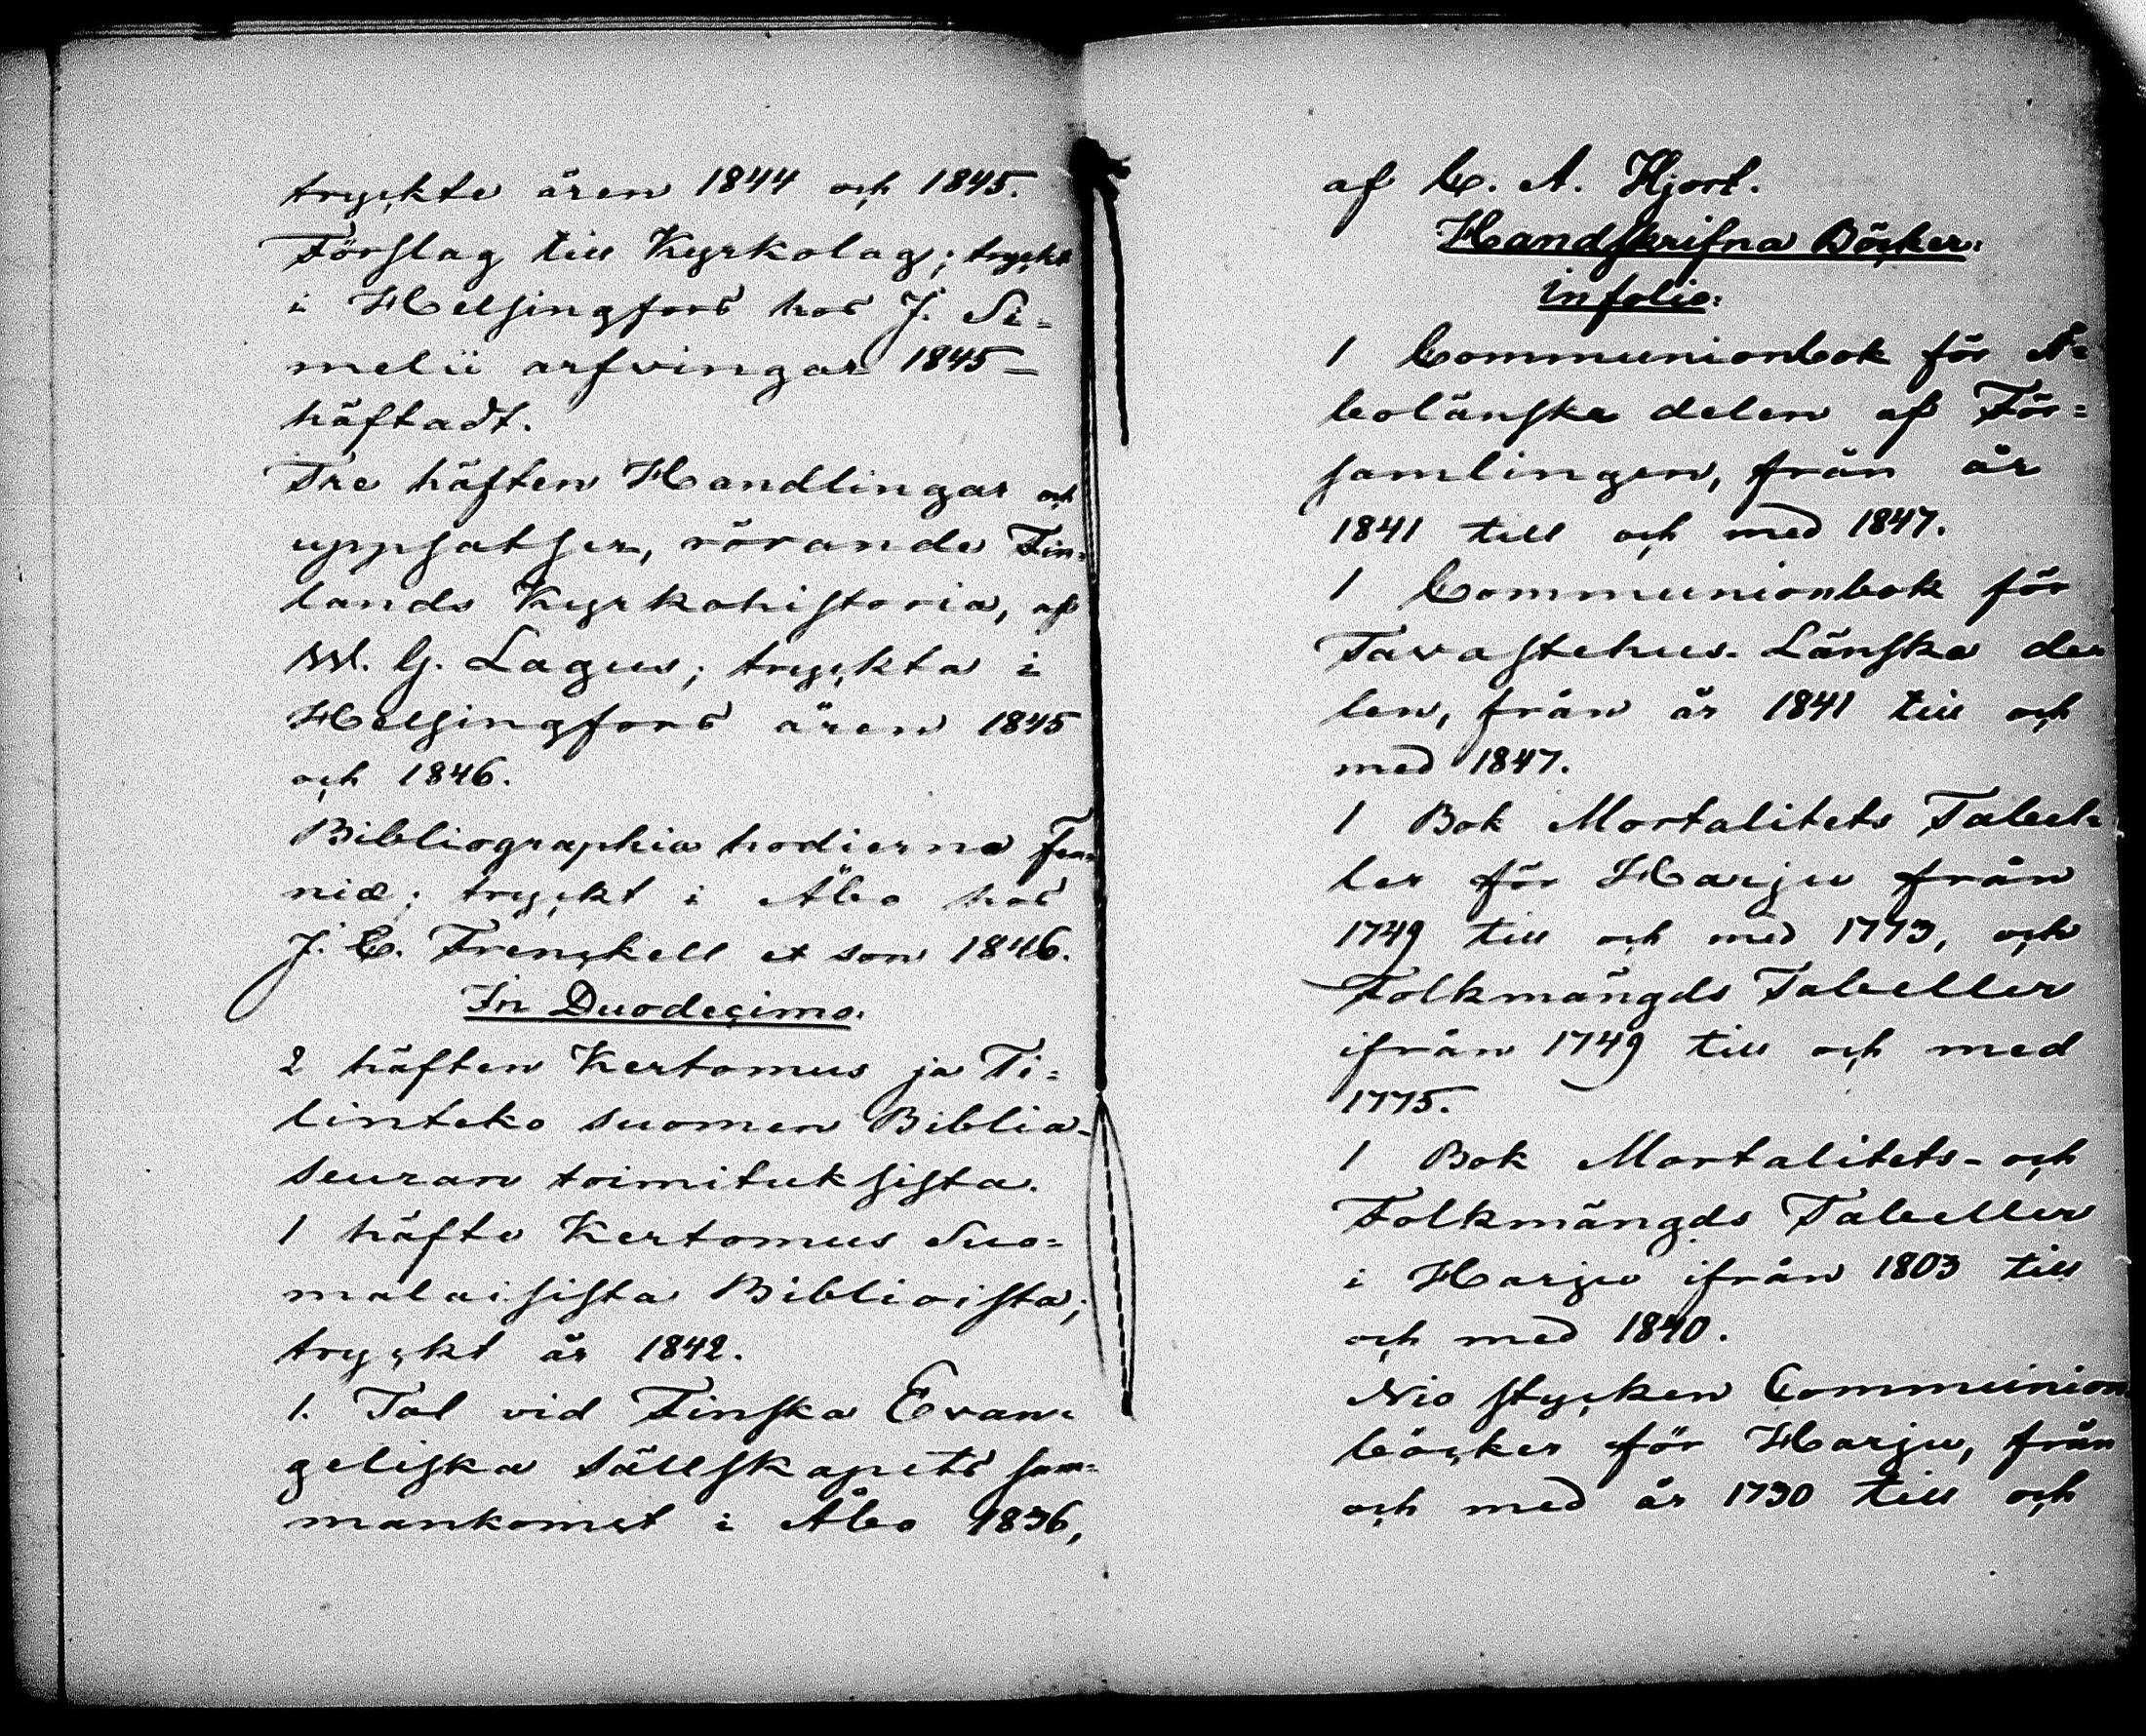 tryckte åren 1844 och 1845.
Förslag till Kyrkolag; tryckt
i Helsingfors hos J. Si=
melii arfvingar 1845 –
häftadt.
Tre häften Handlingar och
uppsatser, rörande Fin=
lands Kyrkohistoria, af
W. G. Lagus; tryckta i
Helsingfors åren 1845
och 1846.
Bibliographia hodierna Fen=
niæ; tryckt i Åbo hos
J. C. Frenckell et son 1846.
In Duodecimo.
2 häften Kertomus ja Ti=
linteko suomen Biblia-
seuran toimituksista.
1 häfte Kertomus Suo=
malaisista Biblioista;
tryckt år 1842.
1. Tal vid Finska Evan=
geliska sällskapets sam=
mankomst i Åbo 1836,
af C. A. Hjort.
Handskrifna Böcker.
in folio.
1 Communionbok för Å=
bolänska delen af För=
samlingen, från år
1841 till och med 1847.
1 Communionbok för
Tavastehus Länska de=
len, från år 1841 till och
med 1847.
1 Bok Mortalitets Tabel=
ler för Harju från
1749 till och med 1773, och
Folkmängds Tabeller
ifrån 1749 till och med
1775.
1 Bok Mortalitets- och
Folkmängds Tabeller
i Harju ifrån 1803 till
och med 1840.
Nio stycken Communion
böcker för Harju, från
och med år 1730 till och